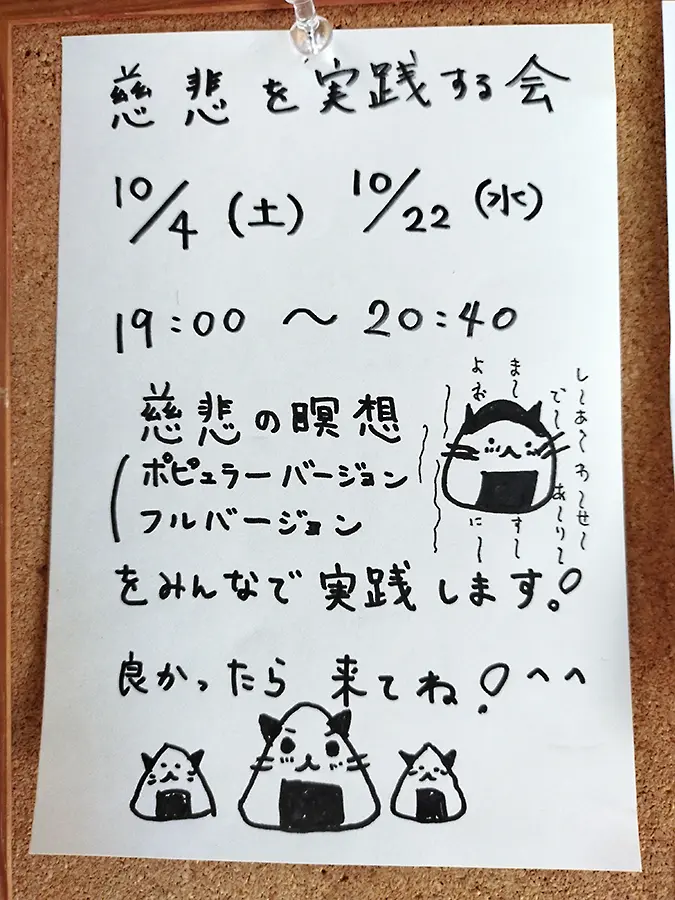 慈悲を実践する会
10/4(土) 10/22(水)
19:00 〜 20:40
慈悲の瞑想
ポピュラーバージョン
フルバージョン
し〜あ〜わ〜せ〜
で〜あ〜り〜
ま〜す〜
よおに〜
をみんなで実践します!
良かったら来てね!^^